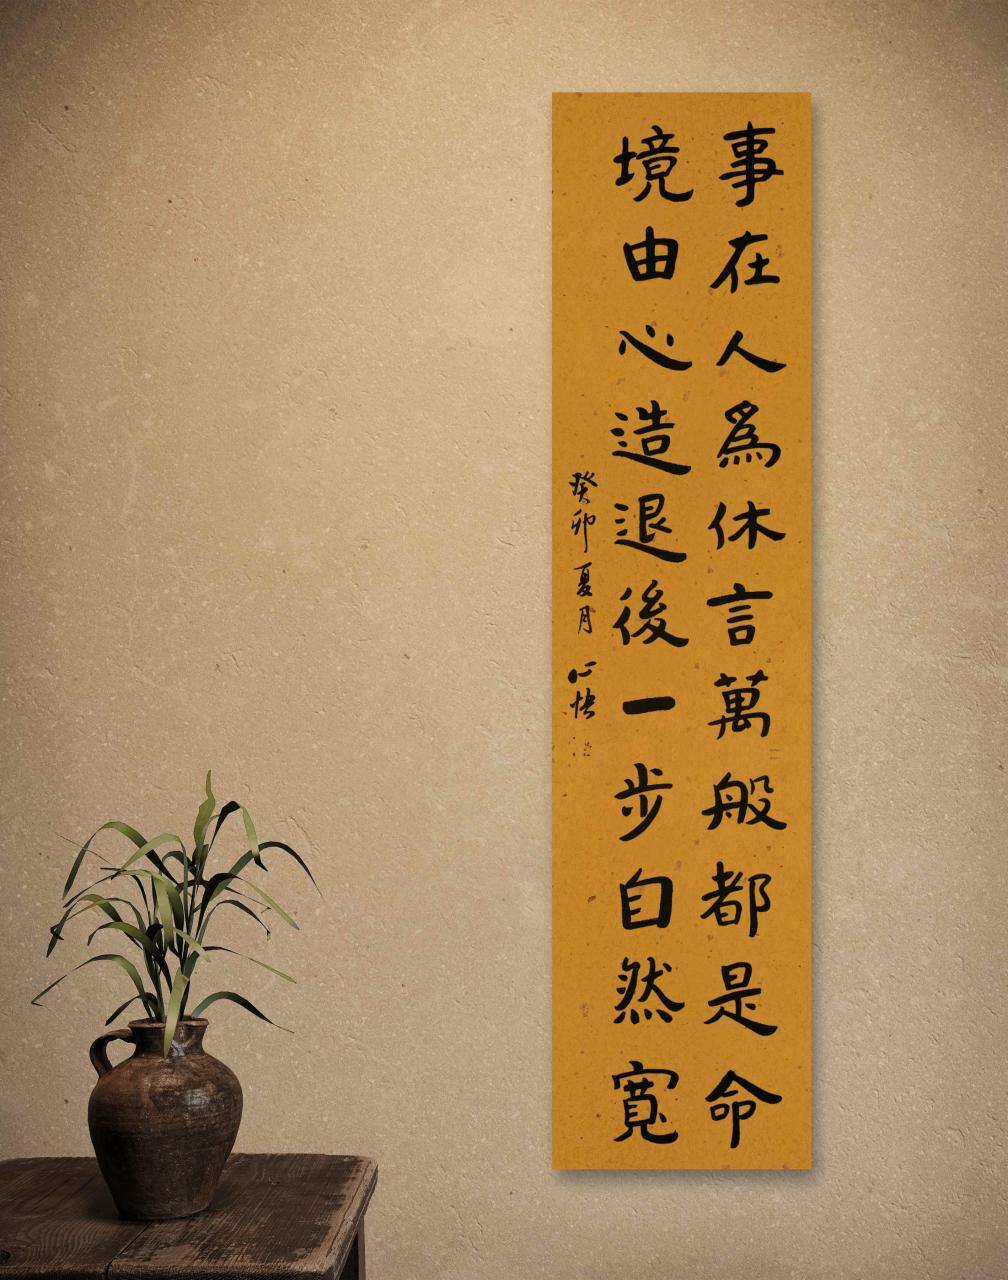 事在人為休言萬般都是命
境由心造退後一步自然寬
癸卯夏月 心快